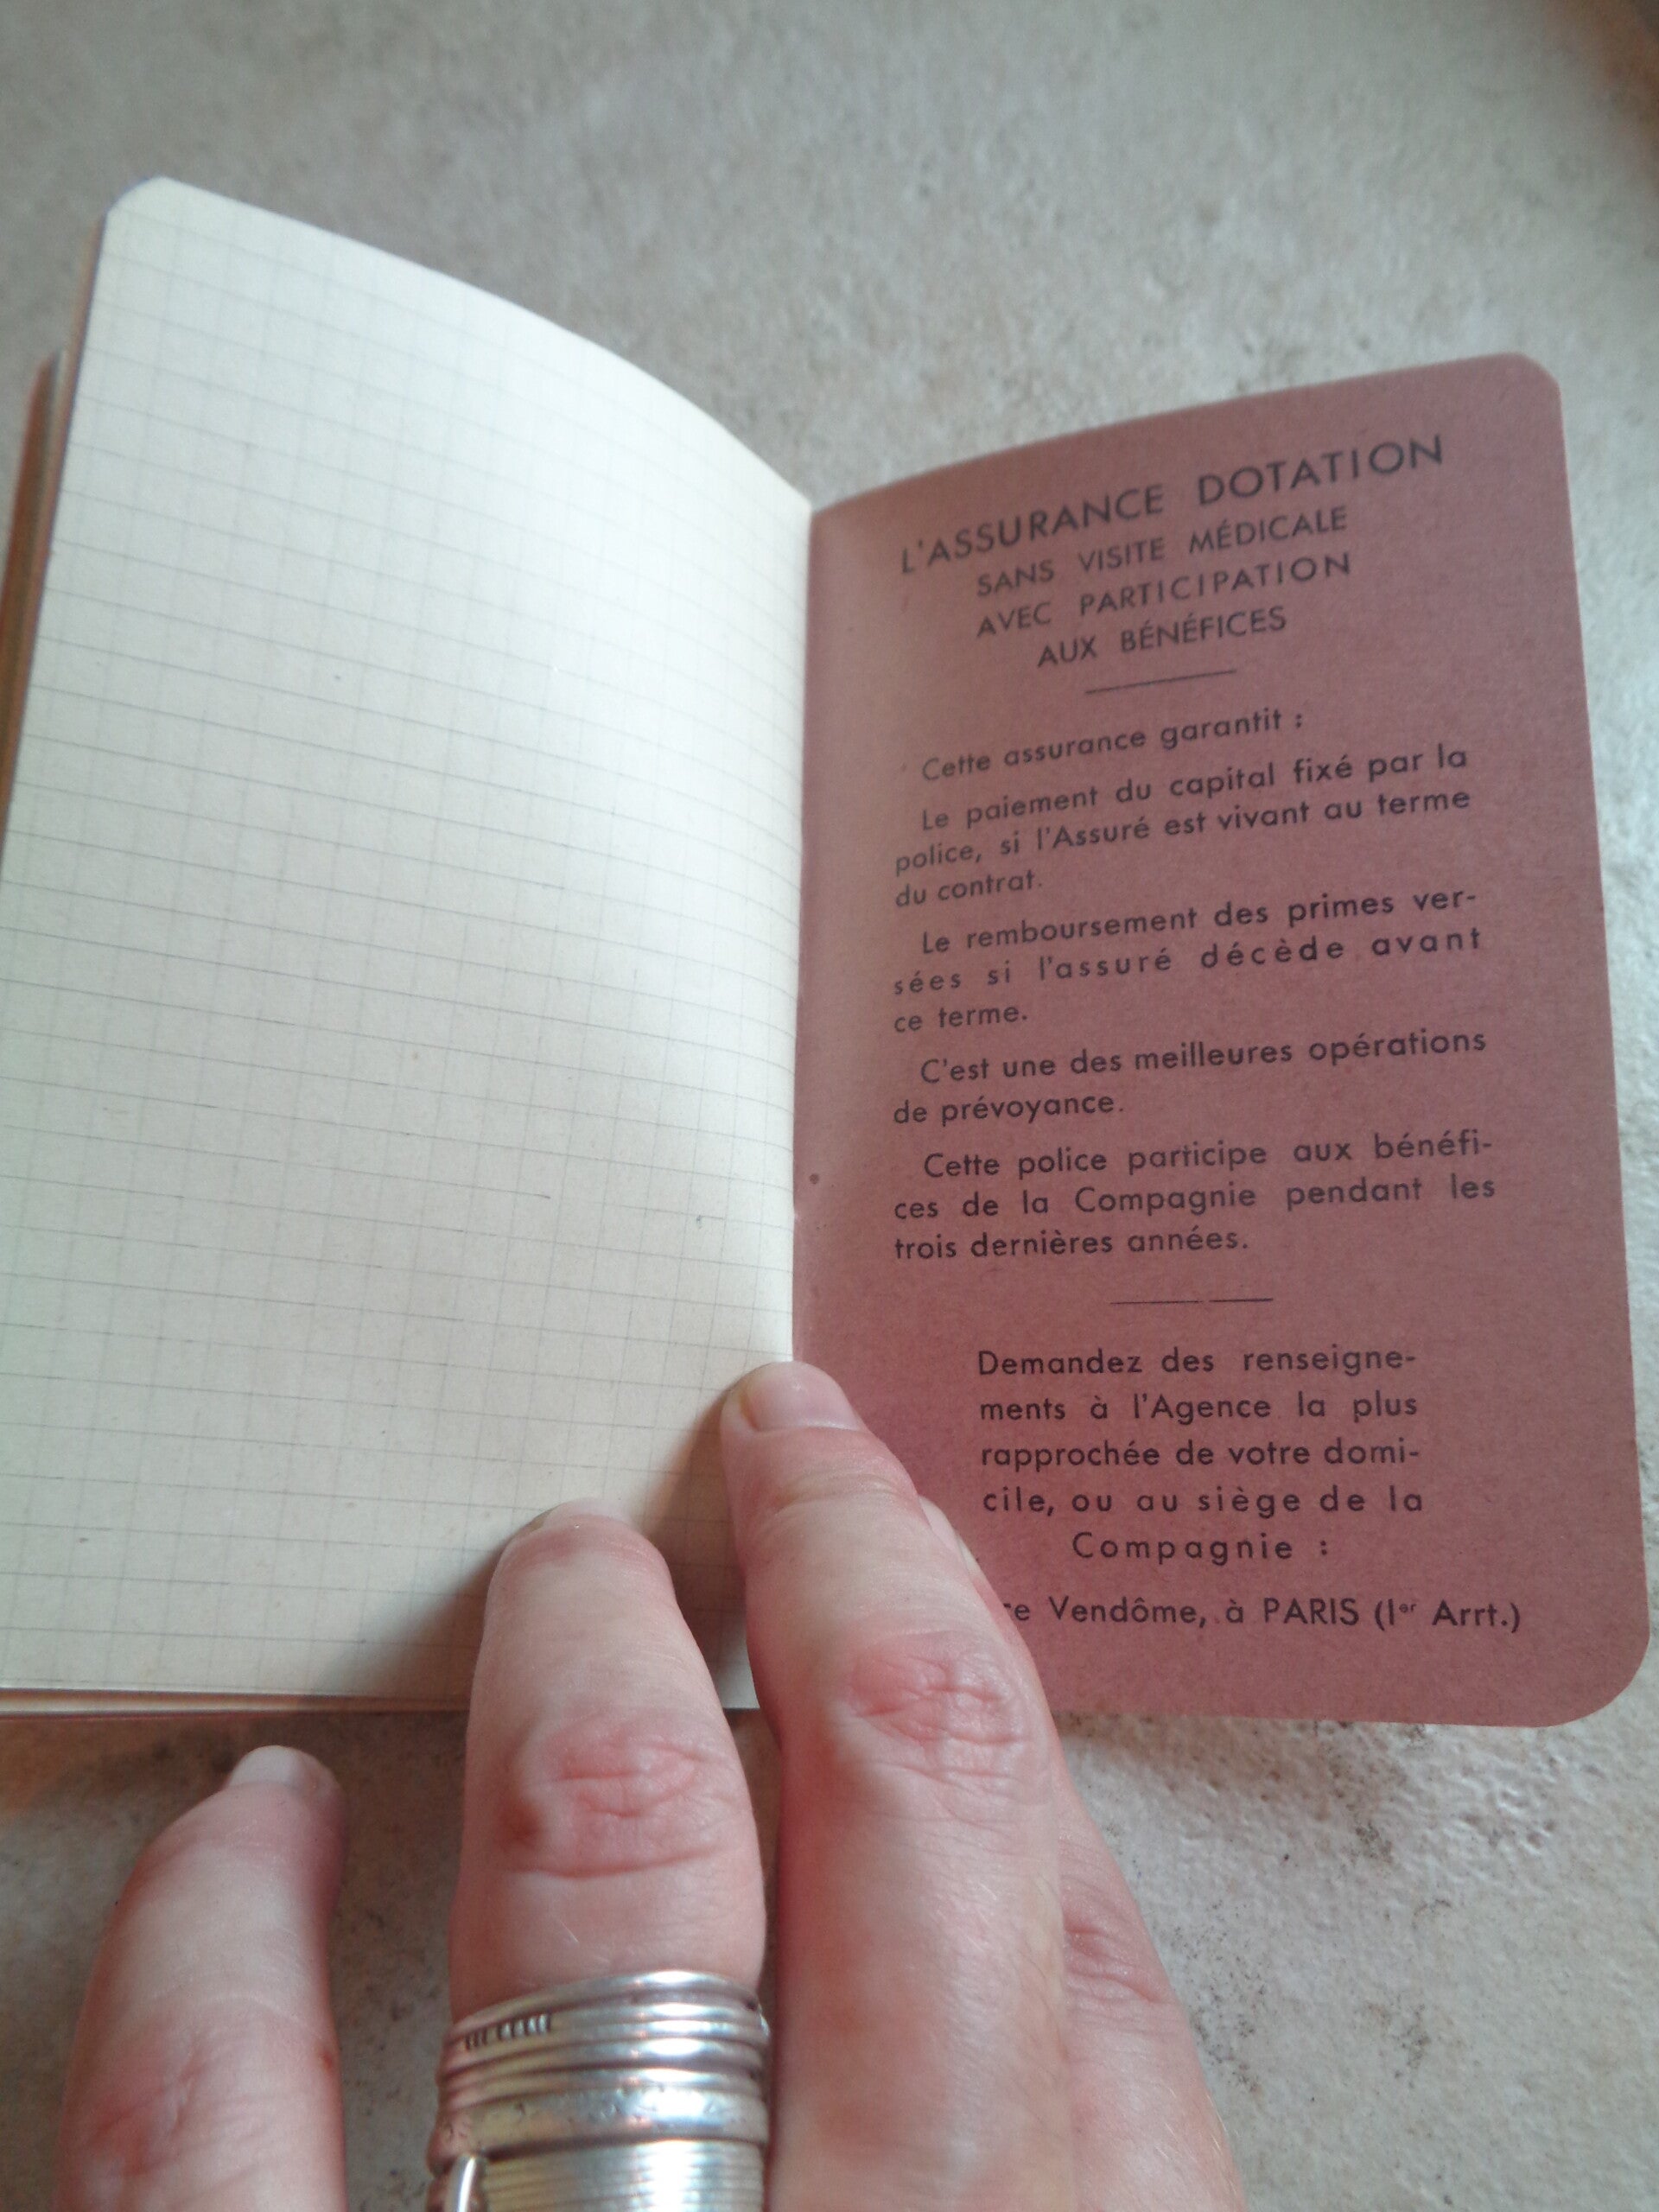 L'ASSURANCE DOTATION
SANS VISITE MÉDICALE
AVEC PARTICIPATION
AUX BÉNÉFICES
Cette assurance garantit :
Le paiement du capital fixé par la
police, si l'Assuré est vivant au terme
du contrat.
Le remboursement des primes ver-
sées si l'assuré décède avant
ce terme.
C'est une des meilleures opérations
de prévoyance.
Cette police participe aux bénéfi-
ces de la Compagnie pendant les
trois dernières années.
Demandez des renseigne-
ments à l'Agence la plus
rapprochée de votre domi-
cile, ou au siège de la
Compagnie :
Vendôme, à PARIS (Ier Arrt.)